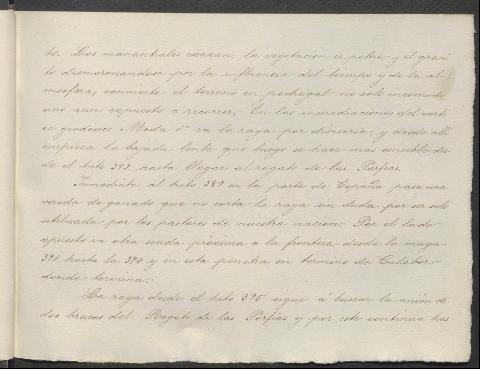 to. Los manantiales escasean, la vegetacion es pobre y el grani
to desmoronandose por la influencia del tiempo y de la at
mosfera, convierte el terreno en pedregal no solo incomodo
sino aun expuesto a recorrer. En las inmediaciones del verti
ce geodesico Meda 1º va la raya por divisoria, y desde alli
empieza la bajada lenta que luego se hace mas sensible des
de el hito 392 hasta llegar al regato de las Porfias.
Inmediata al hito 389 en la parte de España pasa una
vereda de ganado que no corta la raya sin duda por ser solo
utilizada por los pastores de nuestra nacion. Por el lado
opuesto va otra senda próxima a la frontera desde la muga
391 hasta la 394 y en esta penetra en termino de
donde termina.
La raya desde el hito 395 sigue á buscar la union de
dos brazos del Regato de las Porfias y por este continua has